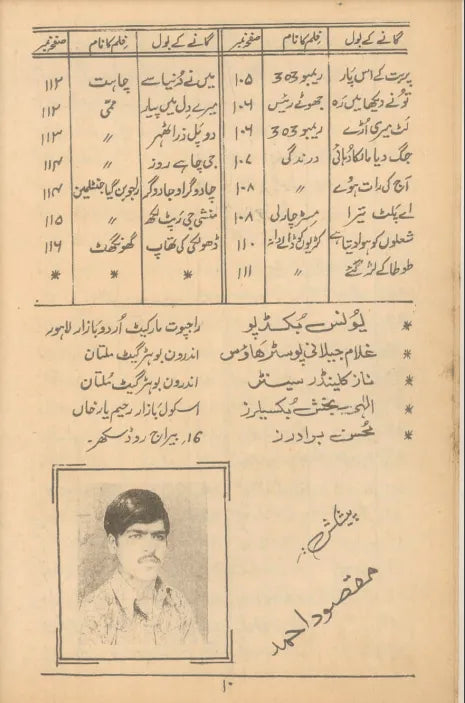 گانے کے بول فِلم کا نام صفحہ نمبر گانے کے بول فِلم کا نام صفحہ نمبر
پربت کے اس پار ریمبو 303 ۱۰۵ میں نے دُنیا سے چاہت ۱۱۲
تو نے دیکھا میں رہ جھوٹے رئیس ۱۰۶ میرے دل میں پیار ممّی ۱۱۲
لٹ میری اُڑے ریمبو 303 ۱۰۶ دو پل ذرا ٹھہر 〃 ۱۱۳
جگ دیا مالکا دُہائی درندگی ۱۰۷ جی چاہے روز 〃 ۱۱۴
آج کی رات ہوے 〃 ۱۰۸ جادوگر او جادوگر راجو بن گیا جنٹلمین ۱۱۴
اے پلٹ تیرا مسٹر چارلی ۱۰۸ منشی جی رپٹ لکھ 〃 ۱۱۵
شعلوں کو ہوا دیتا ہے ۱۱۰ ڈھولکی کی تھاپ گھونگھٹ ۱۱۶
طوطا کے لڑ گئے 〃 ۱۱۱ * * *
* یُونس بُکڈپو راجپوت مارکیٹ اُردو بازار لاہور
* غلام جیلانی پوسٹر ھاؤس اندرون بوہڑ گیٹ ملتان
* ناز کلینڈر سینٹر اندرون بوہڑ گیٹ مُلتان
* الٰہی بخش بُکسیلرز اسکول بازار رحیم یار خاں
* مُحسن برادرز 16، بیراج روڈ سکھر۔
پیشکش:
مقصود احمد
۱۰